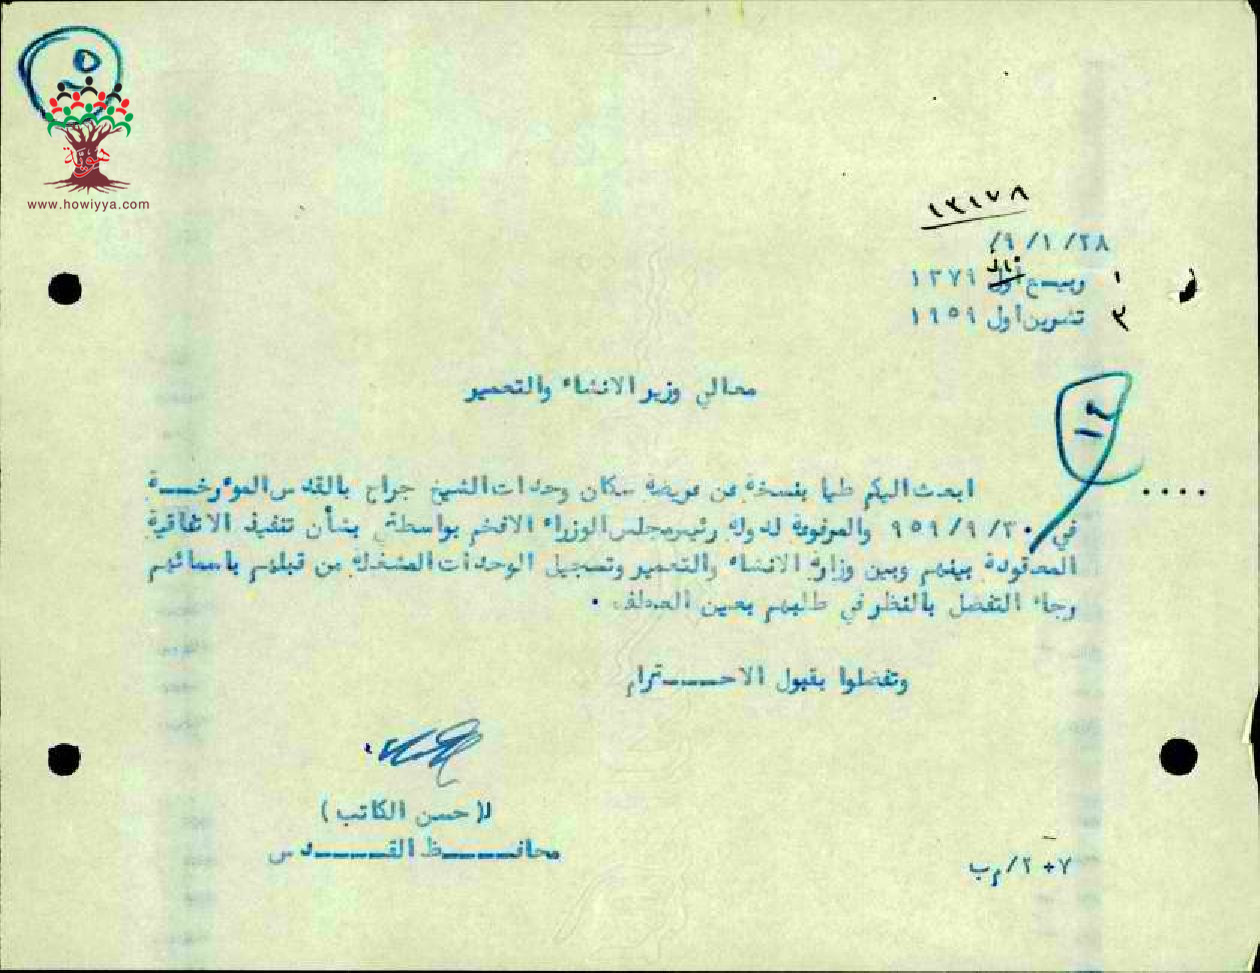 ٥
هوية
www.howiyya.com
١٣١٧٨
٩/١/٢٨/
١ ربيع ثاني ١٣٧٩
٣ تشرين أول ١٩٥٩
معالي وزير الانشاء والتعمير
١٤
٠٠٠٠ ابعث اليكم طيا بنسخة عن عريضة سكان وحدات الشيخ جراح بالقدس المؤرخــة
في ٩٥٩/٩/٣٠ والمرفوعة لدولة رئيس مجلس الوزراء الافخم بواسطتي بشأن تنفيذ الاتفاقية
المعقودة بينهم وبين وزارة الانشاء والتعمير وتسجيل الوحدات المشغلة من قبلهم باسمائهم
رجاء التفضل بالنظر في طلبهم بعين العطف ٠
وتفضلوا بقبول الاحـــترام
لـ(حسن الكاتب)
محافــــظ القــــدس
٧ + ٢/م ب